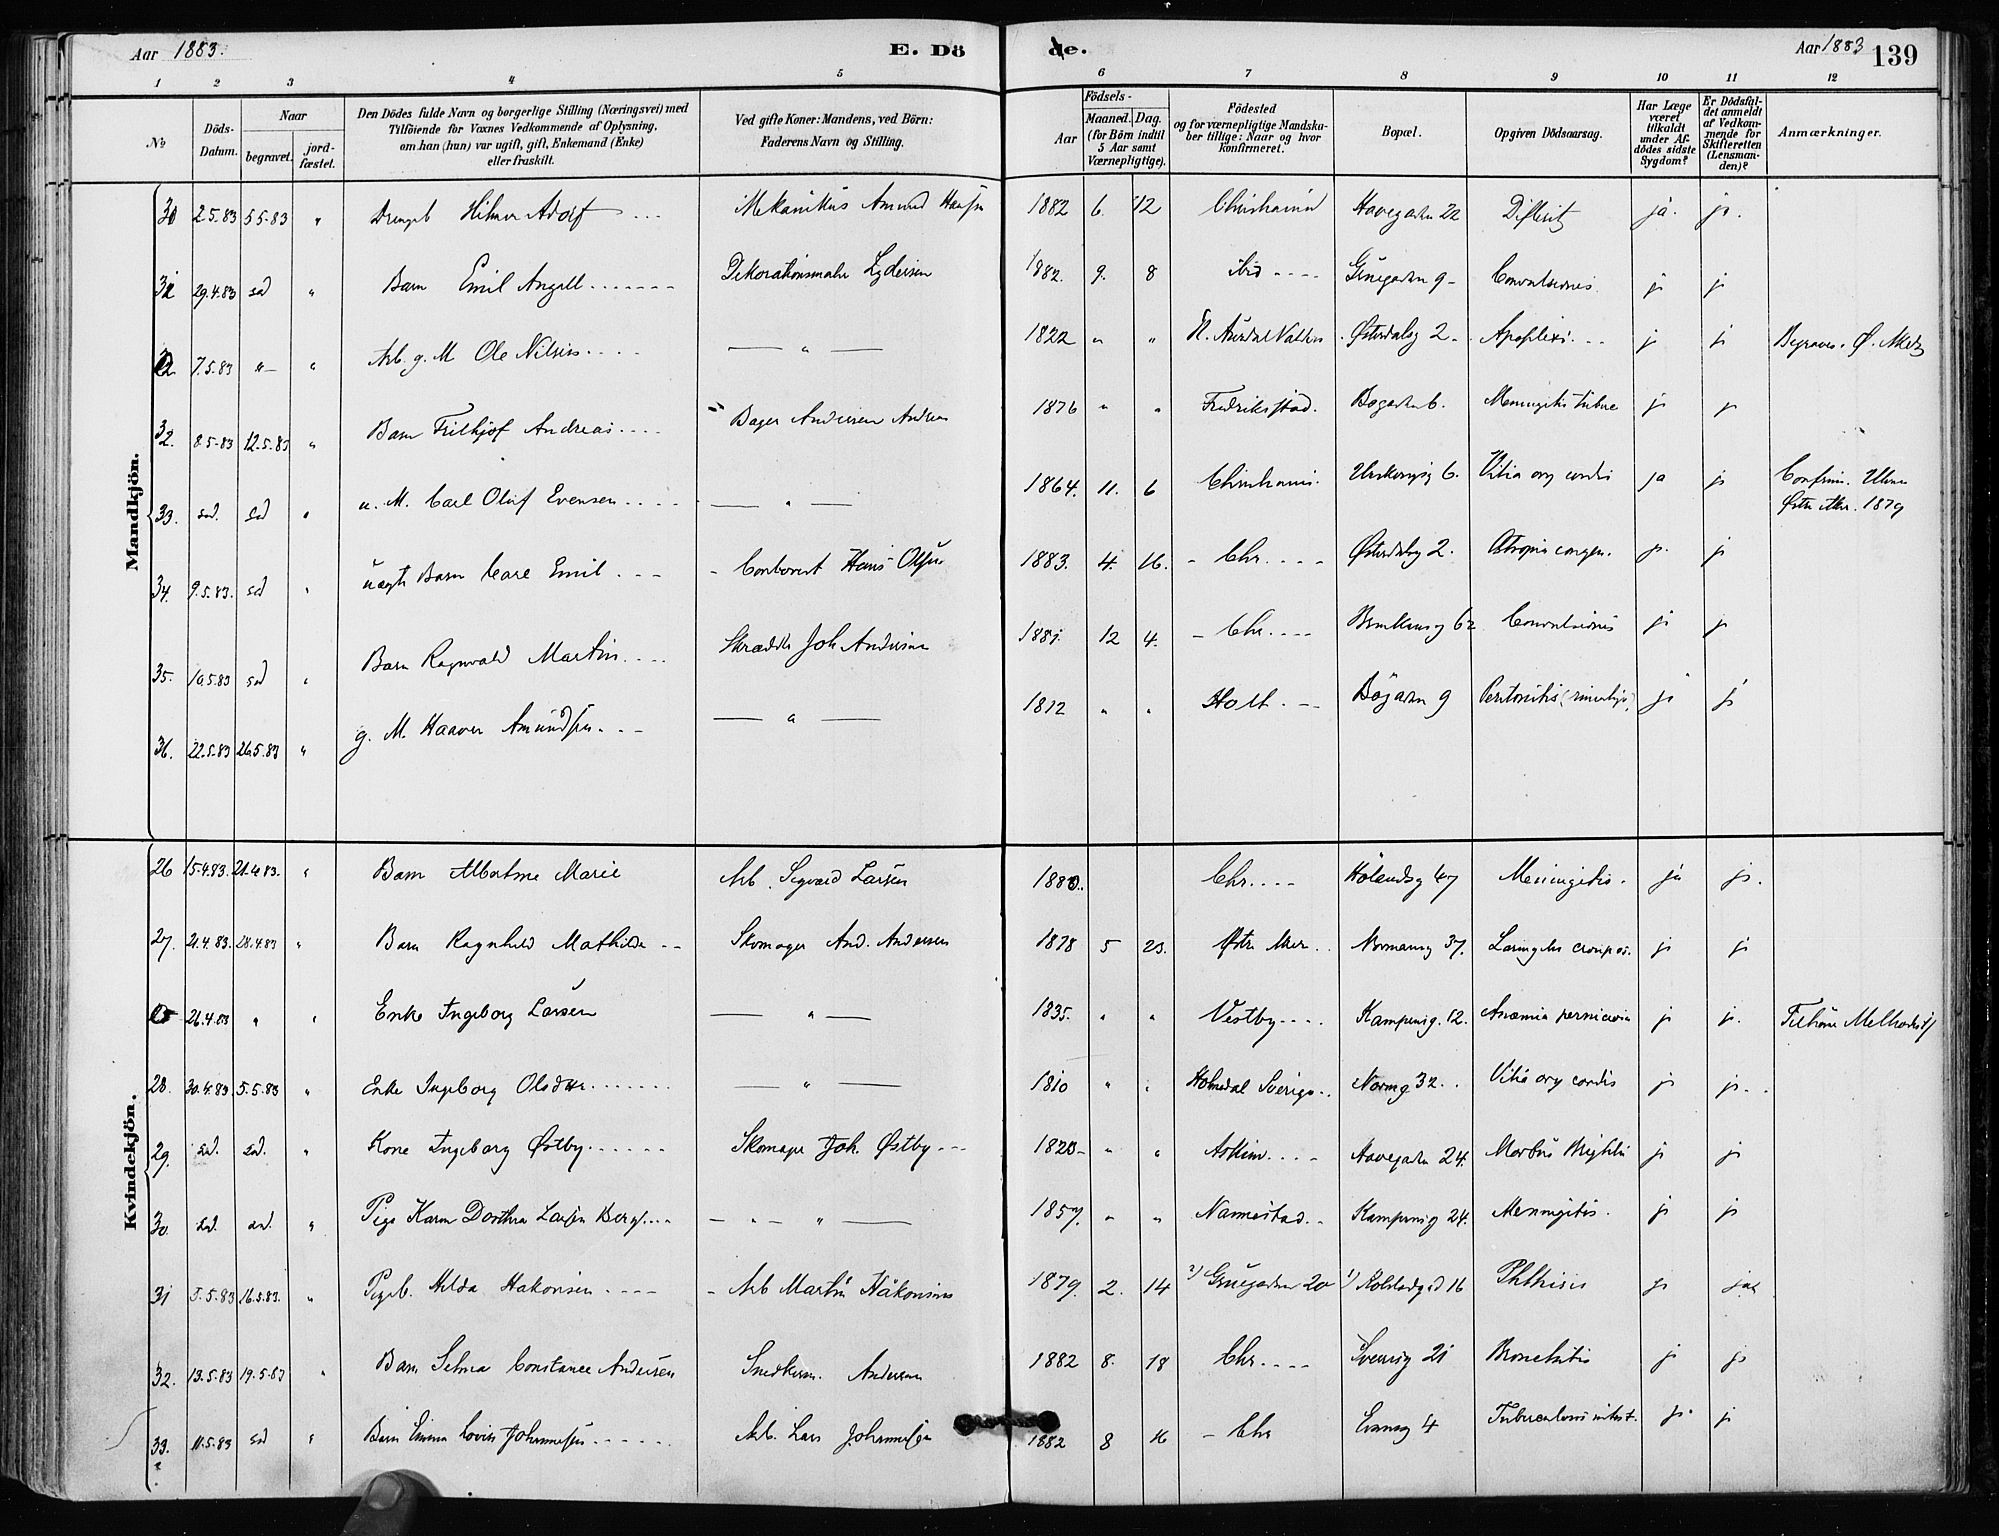 Aar 1883.
E. Dö
de.
Aar 1883
139
1 2 3 4 5 6 7 8 9 10 11 12
№
Döds-Datum.
Naar
begravet.
jord-fæstet.
Den Dödes fulde Navn og borgerlige Stilling (Næringsvei) med
Tilföiende for Voxnes Vedkommende af Oplysning,
om han (hun) var ugift, gift, Enkemand (Enke)
eller fraskilt.
Ved gifte Koner: Mandens, ved Börn:
Faderens Navn og Stilling.
Födsels-
Aar
Maaned. Dag.
(for Börn indtil
5 Aar samt
Værnepligtige).
Födested
og for værnepligtige Mandska-
ber tillige: Naar og hvor
konfirmeret.
Bopæl.
Opgiven Dödsaarsag.
Har Læge
været
tilkaldt
under Af-
dödes sidste
Sygdom?
Er Dödsfal-
det anmeldt
af Vedkom-
mende for
Skifteretten
(Lensman-
den)?
Anmærkninger.
Mandkjön.
30 2.5.83 5.5.83 " Drengeb Hilmar Adolf Mekanikus Amund Hansen 1882 6. 12 Christiania Havegaden 22 Difterit ja. ja.
31 29.4.83 sad " Barn Emil Angell Dekorationsmaler Lydersen 1882. 9. 8 ibid Grüegaden 9 Convulsiones j j
7.5.83 " " Arb. g. M Ole Nilsen — " — 1822 " " N. Aurdal Valders Østerdalsg 2 Apoplexi j j Begraves Ø. Aker
32. 8.5.83 12.5.83 " Barn Frithjof Andreas Bager Andersen 1876 " " Fredriksstad. Bøgaden 6. Meningitis tuberc j j
33. sad. sad " u. M. Carl Oluf Evensen — " — 1864. 11. 6 Christiania. 6. Vitia org cordis ja j Confirm.
Østre Aker. 1879
34. 9.5.83. sad " uægte Barn Carl Emil Hans Olsen 1883. 4. 16. Chr. Østerdalsg 2. Atropia congen. j. j
35. 10.5.83 sad " Barn Ragnvald Martin Skrædder Joh Andersen 1881. 12 4. Chr. 62 Convulsiones j j
36. 22.5.83 26.5.83 " g. M. Haaver Amundsen — " — 1812 " " Holt Bøgaden 9 Peritonitis j j
Kvindekjön.
26 15.4.83. 21.4.83. " Barn Albertine Marie Arb. Sigvard Larsen 1880. Chr. Hølandsg 47 Meningitis. ja j.
27. 21.4.83. 28.4.83 " Barn Ragnhild Mathilde Skomager And. Andersen 1878 5 23. Østre Aker Normansg 37. Laringitis croupos. j j
26.4.83 " " Enke Ingeborg Larsen — " — 1835. " " Vestby Kampensg. 12. Anæmia perniciosa j j.
28. 30.4.83. 5.5.83 " Enke Ingeborg Olsdtr — " — 1810 " " Holmedal Sverige Normg 32. Vitia org cordis j j.
29. sad. sad. " Kone Ingeborg Østby Skomager Joh. Østby 1820 " " Askim Havegaden 24. Morbus Brightii j j
30. sad. sad. " Pige Karen Dorthea Larsen Berg — " — 1857. " " Nannestad Kampensg 24. Meningitis. j j
31 5.5.83 16.5.83. " Pigeb. Hilda Hakonsen Arb Martin Håkonsen 1879. 2. 14 ²) Grüegaden 20 ¹) 16 Phthisis j ja
32. 13.5.83 19.5.83 " Barn Selma Constance Andersen Snedkersv. Andersen 1882 8. 18 Chr. Sverresg 21 Bronchitis j j
33. 11.5.83 sad " Barn Emma Lovise Johannesen Arb. Lars Johannesen 1882 8 16 Chr 4 Tuberculosis intest. j. j